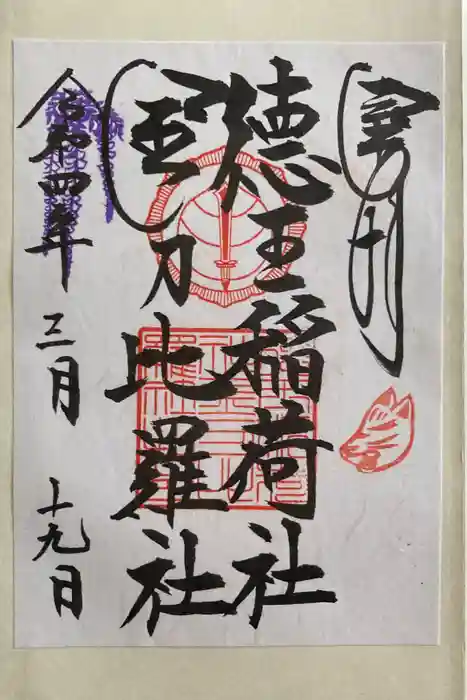 徳王稲荷社
金刀比羅社
令和四年三月十九日